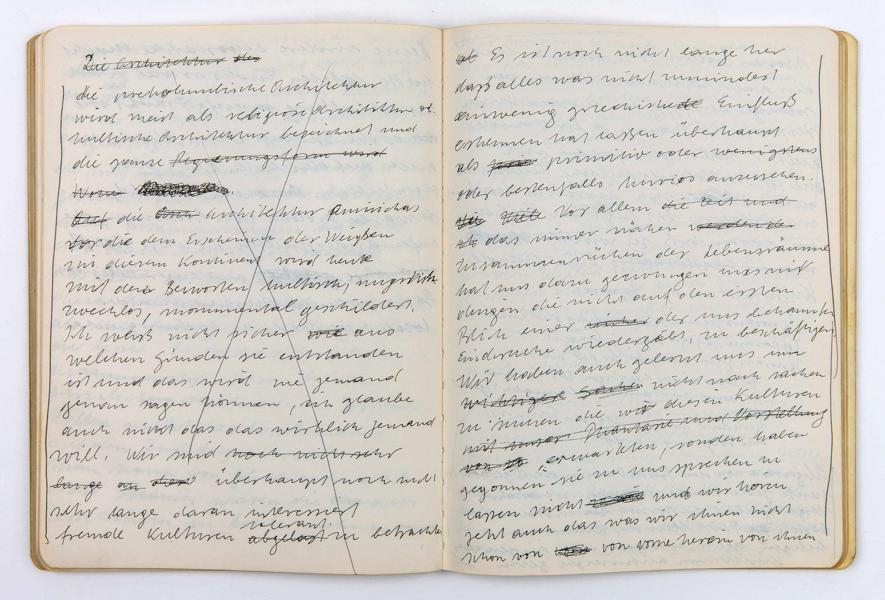 Die Architektur des
die prekolumbische Architektur
wird meist als religiöse Architektur od.
kultische Architektur bezeichnet und
die ganze Regierungsform wird
Wenn
die architektur Amerikas
vor die dem Erscheinen der Weißen
in diesem Kontinent wird heute
mit den Beiworten kultisch, mystisch
zwecklos, monumental geschildert.
Ich weiß nicht sicher wie aus
welchen Gründen sie entstanden
ist und das wird nie jemand
genau sagen können, ich glaube
auch nicht das das wirklich jemand
will. Wir sind noch nicht sehr
lange an überhaupt noch nicht
sehr lange daran interessiert
tolerant
fremde Kulturen abgelöst zu betrachten
Es ist noch nicht lange her
daß alles was nicht zumindest
ein wenig griechische Einfluß
erkennen hat lassen überhaupt
als primitiv oder wenigstens
oder bestenfalls kurios anzusehen.
Viele Vor allem die Zeit und
das immer nähere werden de
Zusammenrücken der Lebensräume
hat uns dazu gezwungen uns mit
dingen die nicht auf den ersten
Blick einer der uns bekannten
Eindrücke wiedergibt, zu beschäftigen.
Wir haben auch gelernt uns nun
wichtigere Sachen nicht nach sachen
zu die wir diesen Kulturen
mit unser Phantasie und Vorstellung
erwarteten, sondern haben
begonnen sie zu uns sprechen zu
lassen nicht und wir hören
jetzt auch das was wir ihnen nicht
schon von von vorne herein von ihnen